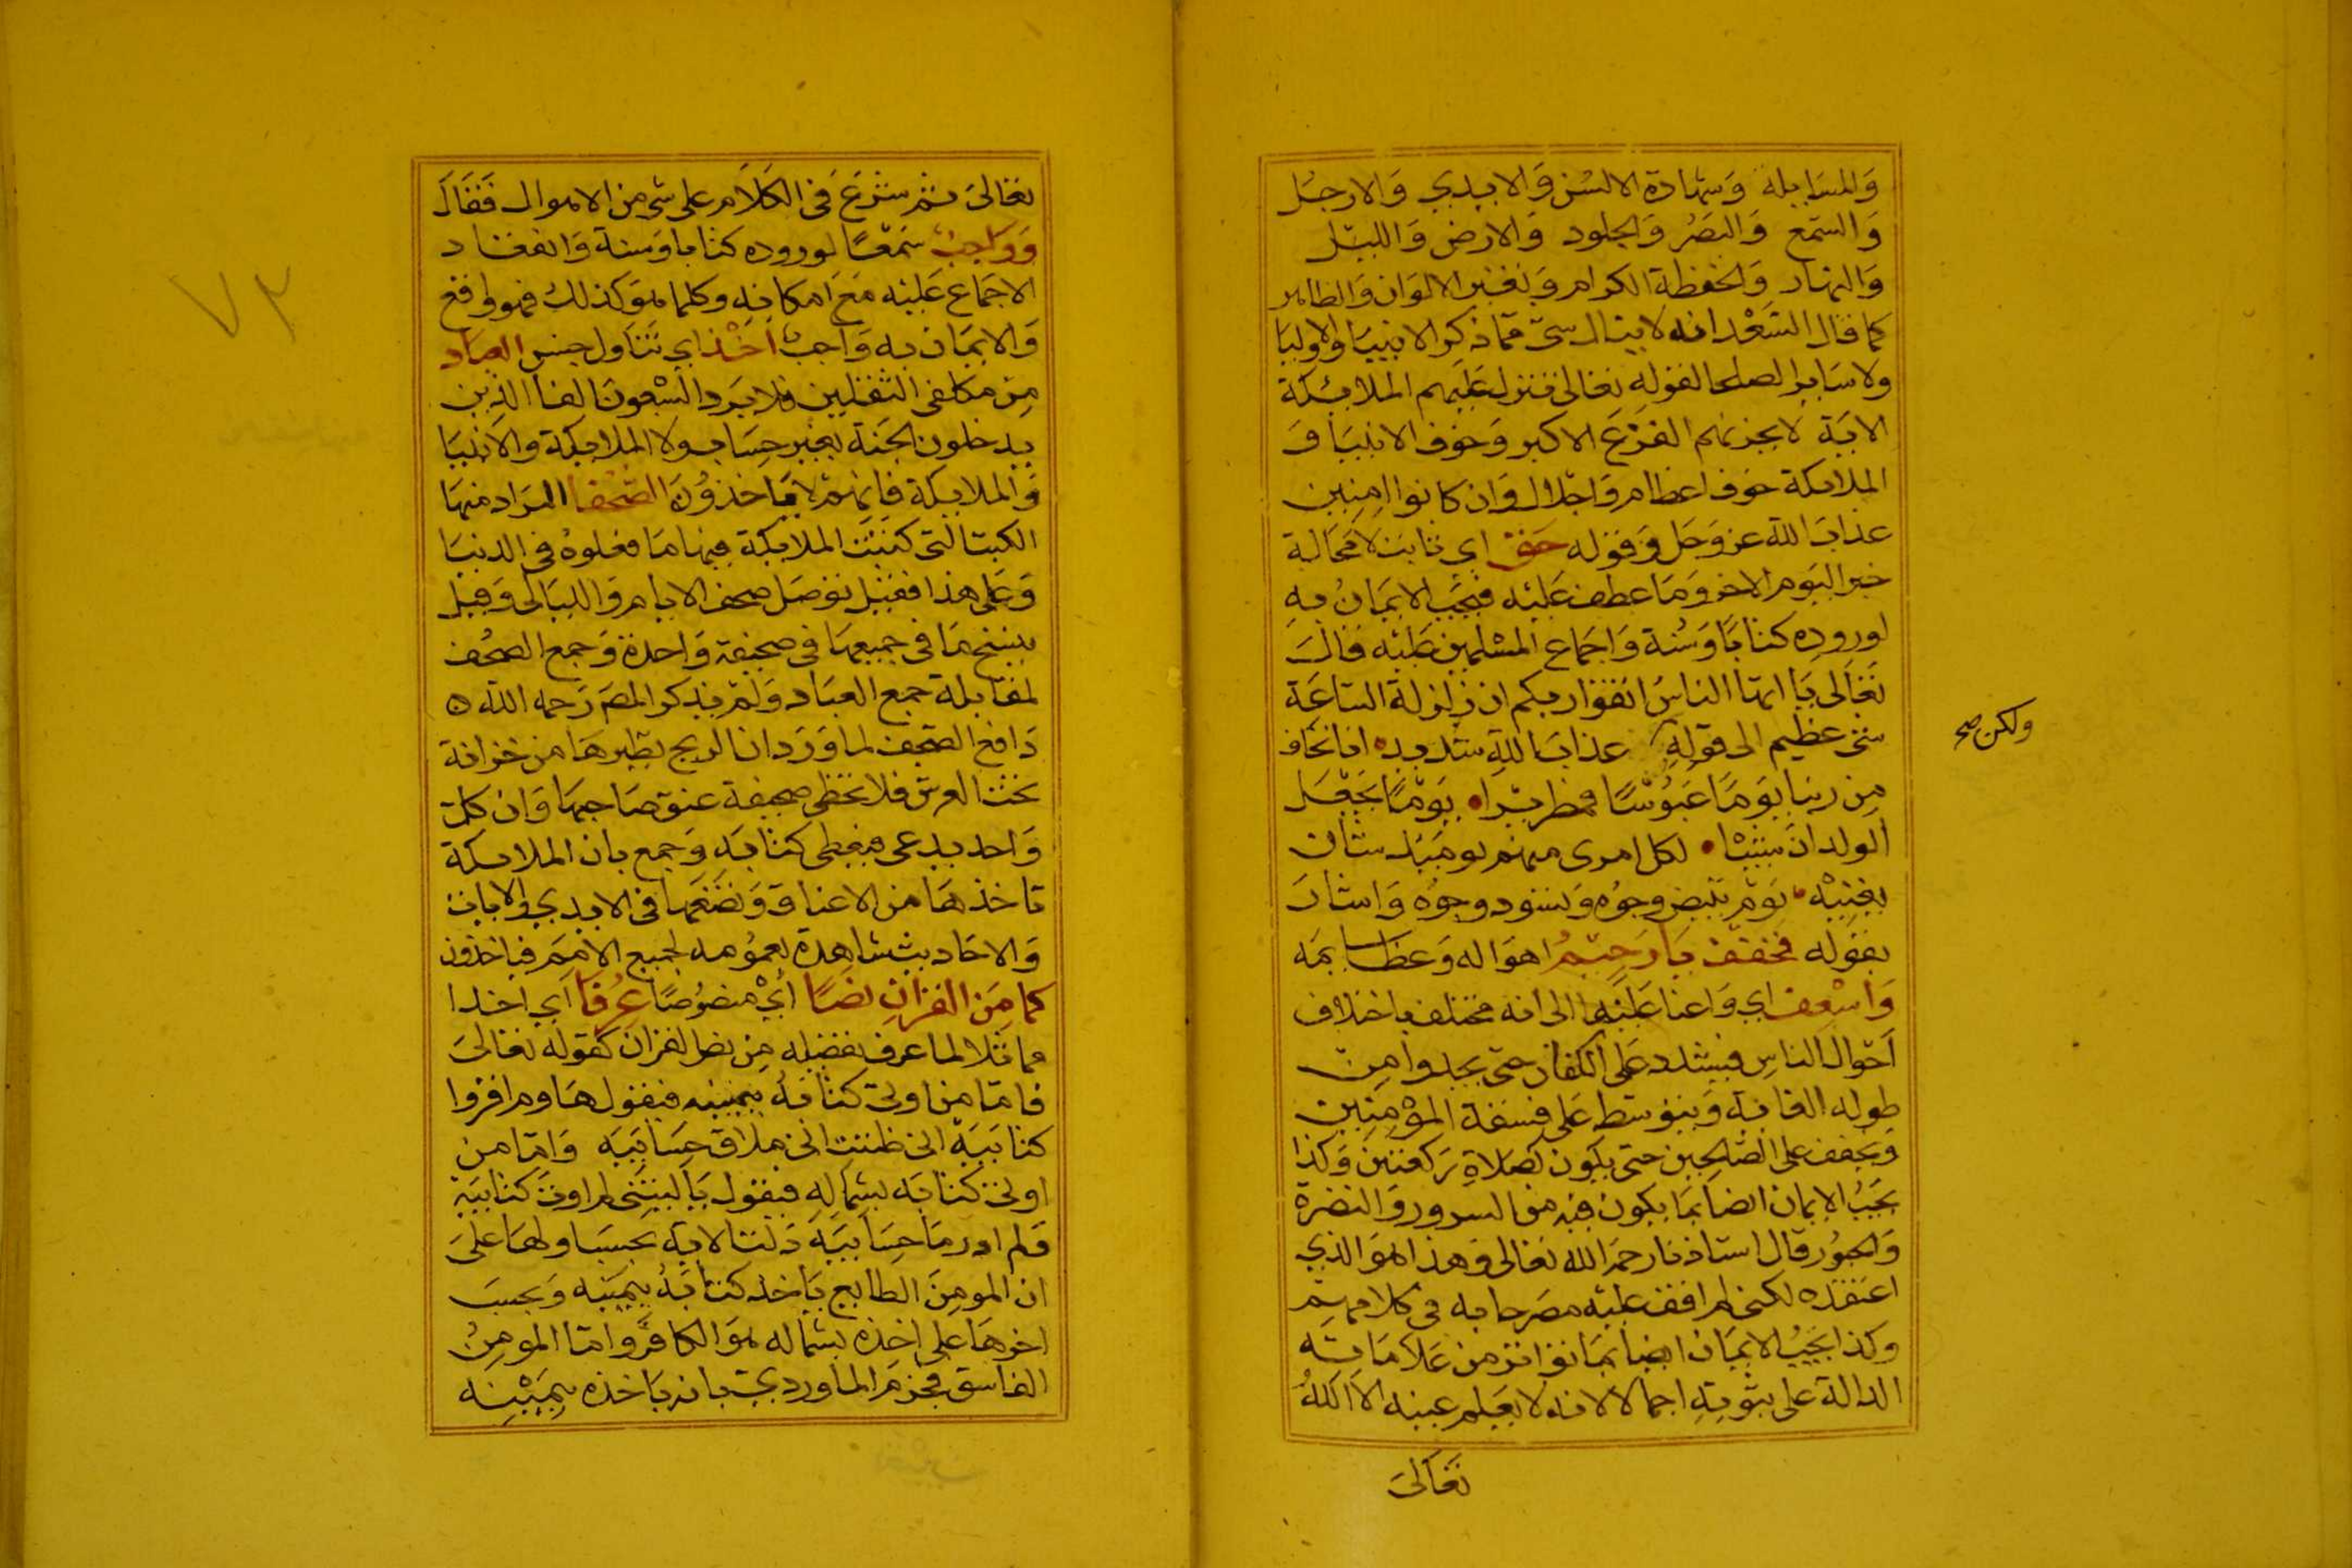 والمسايلة وشهادة الالسن والايدي والارجل
والسمع والبصر والجلود والارض والليل
والنهار والحفظة الكرام وتغير الالوان والظاهر
كما قال السعد انه لاينال شى مما ذكر الانبيا والاوليا
ولا ساير الصلحا لقوله تعالى تتنزل عليهم الملايكة
الاية لا يحزنهم الفزع الاكبر وخوف الانبيا و
الملايكة خوف اعظام واجلال وان كانوا امنين
عذاب الله عز وجل وقوله حق اي ثابت لا محالة
خبر اليوم الاخر وما عطف عليه فيجب الايمان به
لوروده كتابا وسنة واجماع المسلمين عليه قال
تعالى يا ايها الناس اتقوا ربكم ان زلزلة الساعة
شى عظيم الى قوله عذاب الله شديد انا نخاف
ولكن صح
من ربنا يوما عبوسا قمطريرا يوما يجعل
الولدان شيبا لكل امرى منهم يوميذ شان
يغنيه يوم تبيض وجوه وتسود وجوه واشار
بقوله فخفف يا رحيم اهواله وعظايمه
واسعف اي واعنا عليها الى انه مختلف باختلاف
احوال الناس فيشدد على الكفار حتى يجدوا من
طوله الغاية ويتوسط على فسقة المؤمنين
ويخفف على الصالحين حتى يكون كصلاة ركعتين وكذا
يجب الايمان ايضا بما يكون فيه من السرور والنضرة
والحبور قال استاذنا رحمه الله تعالى وهذا هو الذي
اعتقده لكني لم اقف عليه مصرحا به في كلامهم
وكذا يجب الايمان ايضا بما تواتر من علاماته
الدالة على ثبوته اجمالا لانه لا يعلم عينه الا الله
تعالى
تعالى ثم شرع في الكلام على شى من الاهوال فقال
وواجب سمعا لوروده كتابا وسنة وانعقاد
الاجماع عليه مع امكانه وكلما هو كذلك فهو واقع
والايمان به واجب اخذ اي تناول جنس العباد
من مكلفى الثقلين فلا يرد السبعون الفا الذين
يدخلون الجنة بغير حساب ولا الملايكة والانبيا
والملايكة فانهم لا ياخذون الصحفا المراد منها
الكتب التى كتبت الملايكة فيها ما فعلوه في الدنيا
وعلى هذا فقيل توصل صحف الايام والليالى وقيل
ينسخ ما في جميعها في صحيفة واحدة وجمع الصحف
لمقابلة جمع العباد ولم يذكر المص رحمه الله
دافع الصحف لما ورد ان الريح يطيرها من خزانة
تحت العرش فلا تخطى صحيفة عنق صاحبها وان كل
واحد يدعى فيعطى كتابه وجمع بان الملايكة
تاخذها من الاعناق وتضعها في الايدي والايات
والاحاديث شاهدة بعمومه لجميع الامم فياخذون
كما من القران نصا اي منصوصا عرفا اي اخذا
مماثلا لما عرف تفضيله من نص القران كقوله تعالى
فاما من اوتى كتابه بيمينه فيقول هاوم اقروا
كتابيه انى ظننت انى ملاق حسابيه واما من
اوتى كتابه بشماله فيقول يا ليتنى لم اوت كتابيه
ولم ادر ما حسابيه دلت الاية بحسب اولها على
ان المومن الطايع ياخذ كتابه بيمينه وبحسب
اخرها على اخذه بشماله هو الكافر واما المومن
الفاسق فجزم الماوردي بانه ياخذه بيمينه
٧٢